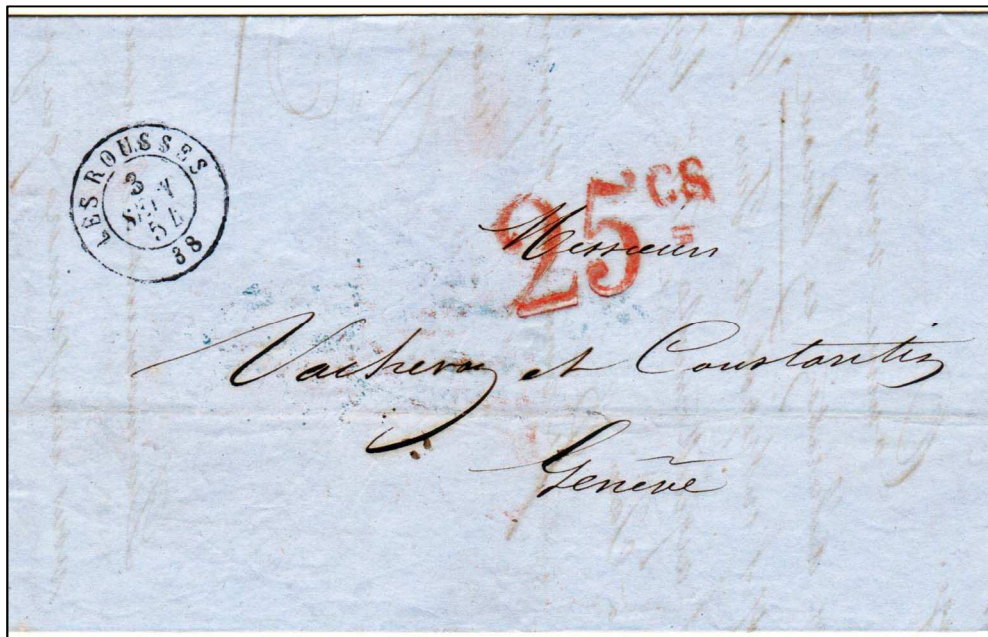 LES ROUSSES
3
SEPT
54
38
25 CS
Messieurs
Vacheron et Constantin
Genève